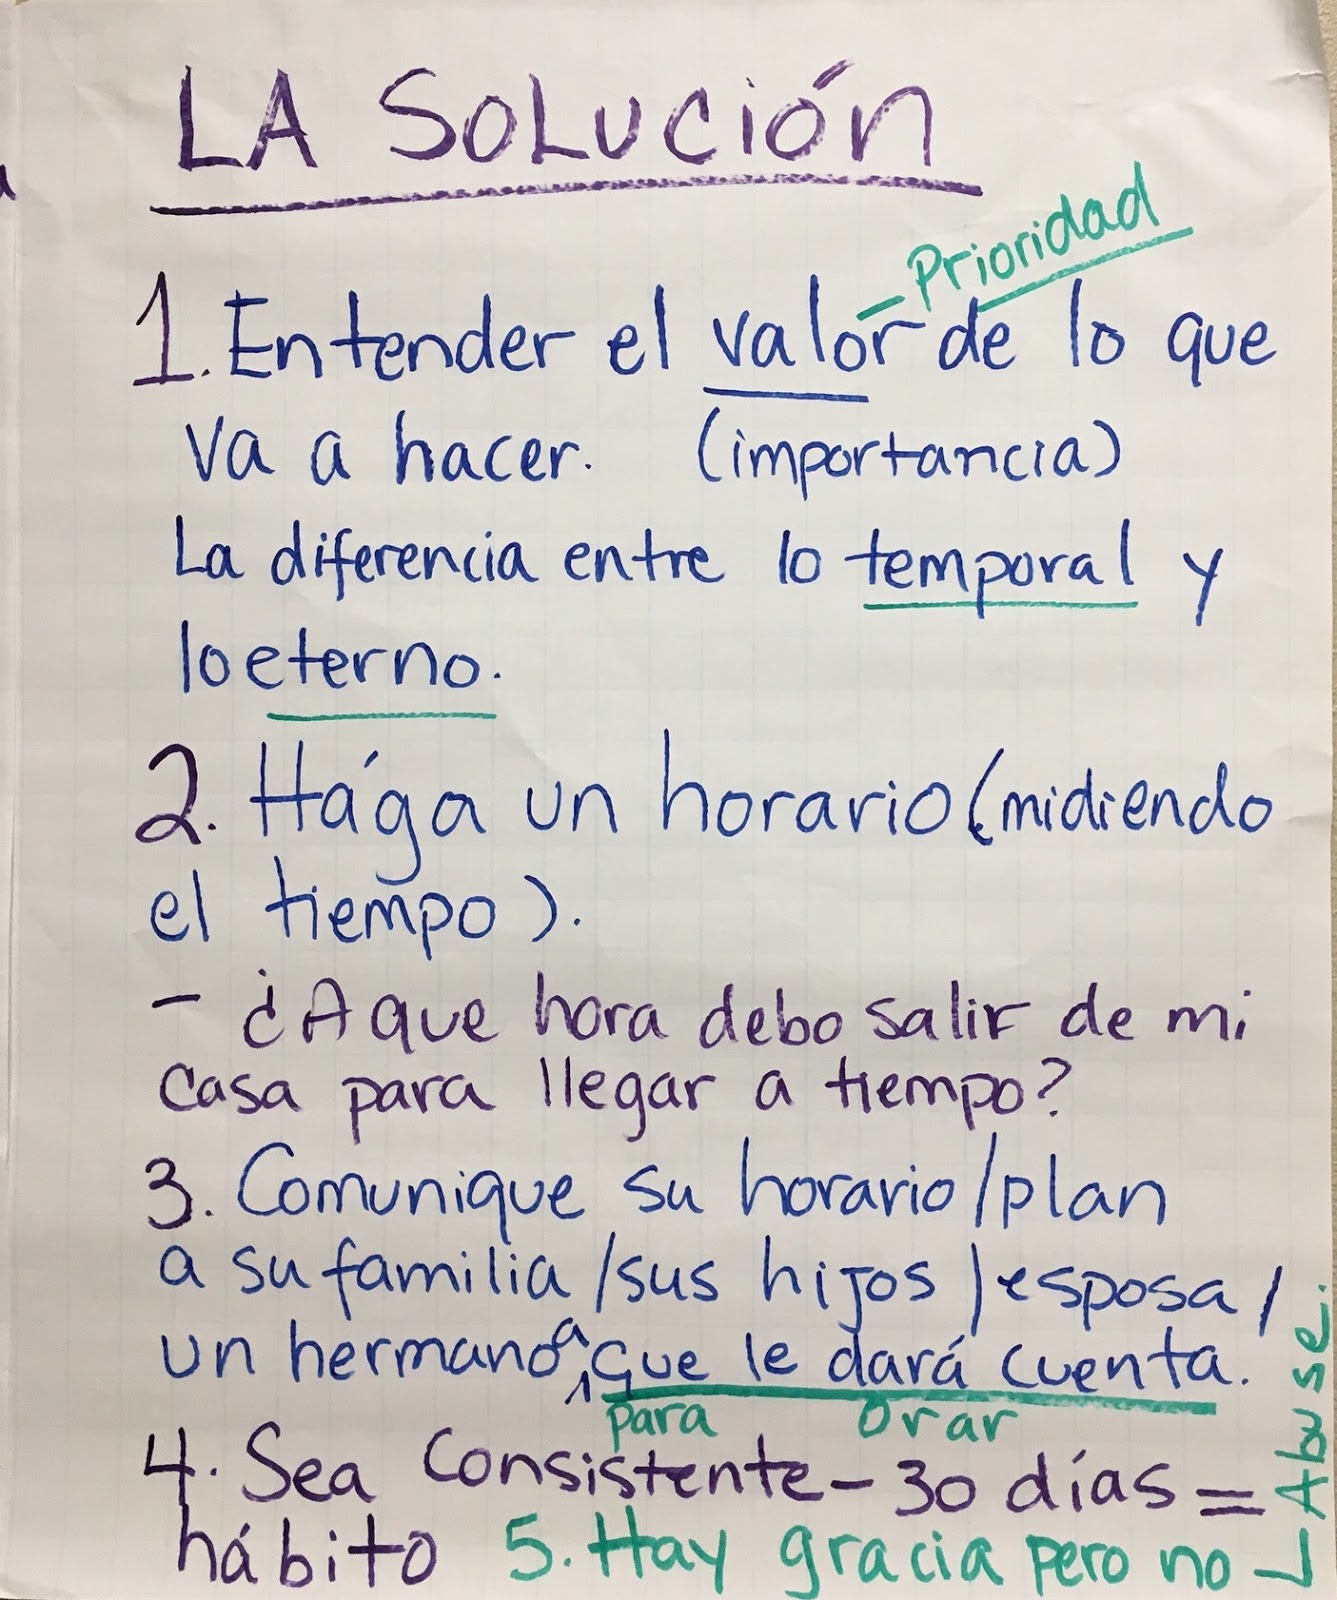 LA SOLUCIÓN
- Prioridad
1. Entender el valor de lo que
va a hacer. (importancia)
La diferencia entre lo temporal y
lo eterno.
2. Hága un horario (midiendo
el tiempo).
- ¿A que hora debo salir de mi
casa para llegar a tiempo?
3. Comunique su horario/plan
a su familia/sus hijos/esposa/
un hermano a que le dará cuenta.
para orar
4. Sea consistente - 30 días =
hábito 5. Hay gracia pero no
Abuse.